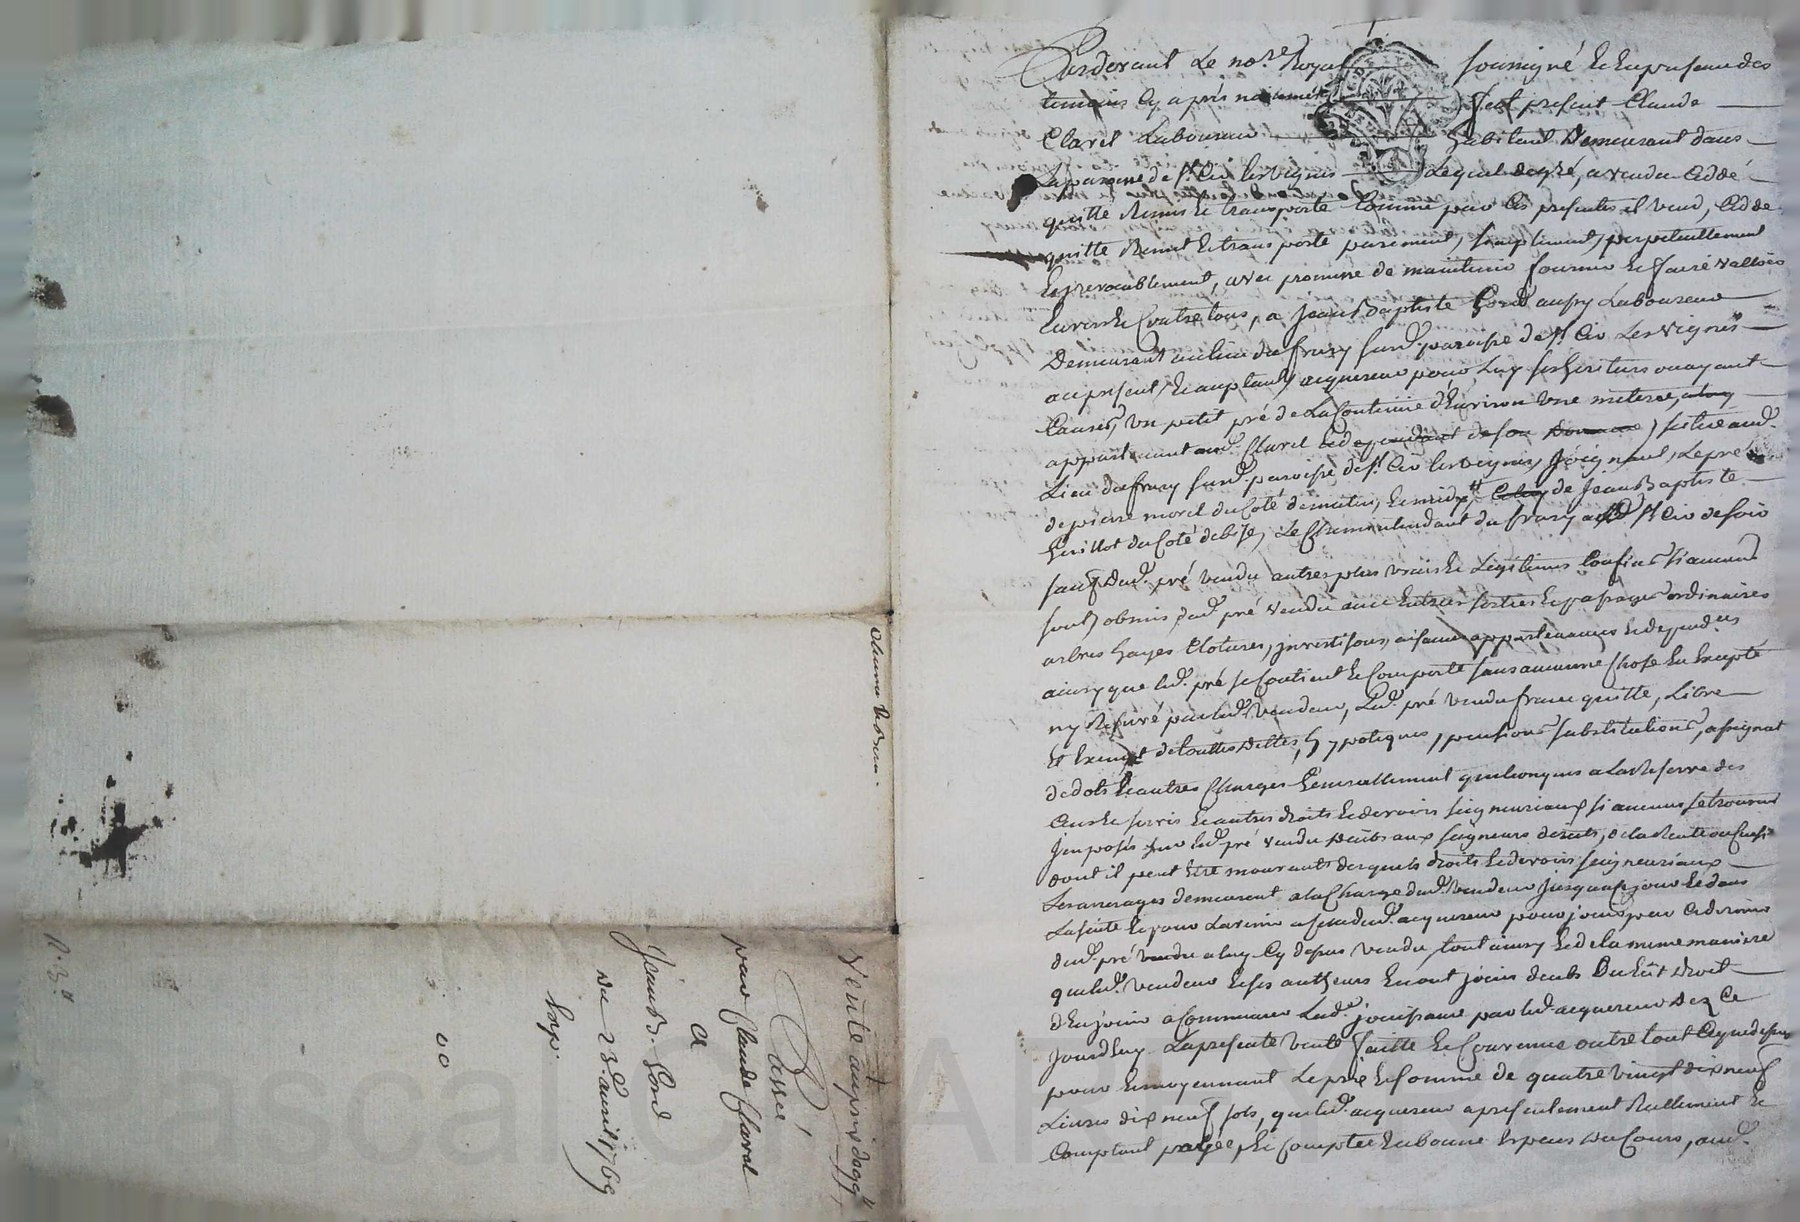 Pardevant Le no.re Royal soussigné et en presence des
temoins cy après nommés, fut present Claude
Claret Laboureur habitant Demeurant dans
La paroisse de St. Cir les vignes Lequel de gré, a vendu cedé
quitté Remis et transporté comme par ces presentes il vend, cede
quitte Remet et transporte purement, simplement, perpetuellement
et irrevocablement, avec promesse de maintenir fournir et faire valloir
envers et contre tous, a Jean Baptiste Gord aussy Laboureur
Demeurant au lieu du frury susd. paroisse de St. Cir Les vignes
au present, et acceptant acquereur pour Luy ses heritiers ou ayant
causes, un petit pré de La contenue d'Environ une meterée,
appartenant aud. Claret et dependant de son Domaine, situé aud.
Lieu du frury susd. paroisse de St. Cir les vignes, Joignant, Le pré
de pierre morel du coté de matin, et midy celuy de Jean Baptiste
Guillot du coté de bize, Le chemin tendant du frury aud. St. Cir de soir
sauf dud. pré vendu autres plus vrais et Legitimes confins si aucuns
sont obmis, dud. pré vendu avec entrées sorties et passages ordinaires
arbres hayes clotures, investisons, aisances appartenances et dependces
ainsy que led. pré se contient et comporte sans aucune chose en excepté
ny Reservé par led. Vendeur, Led. pré vendu franc quitte, Libre
et Exempt de touttes dettes, hypoteques, pensions substitutions, assignat
de dots et autres charges Generallement quelconques a La Reserve des
Cens et servis et autres droits et devoirs seigneuriaux si aucuns se trouvent
Imposés sur led. pré vendu deubs aux seigneurs directs, de la Rente ou
dont il peut Etre mouvant desquels droits et devoirs seigneuriaux
Les arrerages demeurent a la charge dud. Vendeur jusqu'a ce jour et dans
La suite et pour Lavenir a celle dud. acquereur pour jouir par ce dernier
dud. pré vendu a luy cy dessus vendu, tout ainsy et de la meme maniere
que led. vendeur et ses autheurs en ont joui deub ou Eut droit
d'En jouir a commencer Lad. jouissance par led. acquereur Dez Ce
jourdhuy. La presente vente faitte et convenue outre tout ce que dessus
pour et moyennant Le prix et somme de quatre vingt dix neuf
Livres dix neuf sols, que led. acquereur a presentement Reellement et
comptant payée, et comptée en bonne Especes du Cours, aud.
Vente au prix de 99#
Passée
par Claude Claret
a
Jean B. Gord
du 23e. avril 1769
Exp.
00